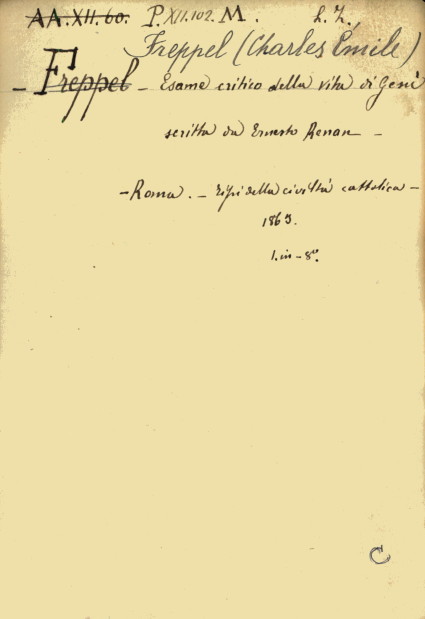 AA.XII.60. P.XII.102.M. L.I.,
Freppel (Charles Émile)
– Freppel – Esame critico della vita di Gesù
scritta da Ernesto Renan –
– Roma. – Tipi della civiltà cattolica –
1863.
1. in – 8º.
C